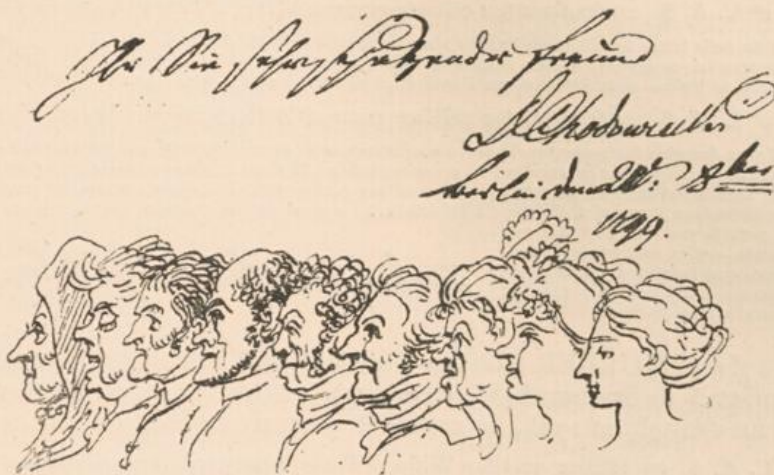 Ihr Sie sehr schätzender Freund
D Chodowiecki
Berlin den 8br
1799.